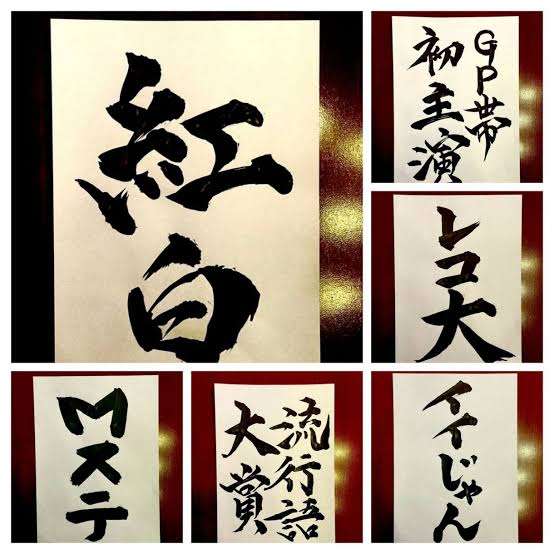 紅白
GP帯
初主演
レコ大
Mステ
流行語
大賞
イイじゃん